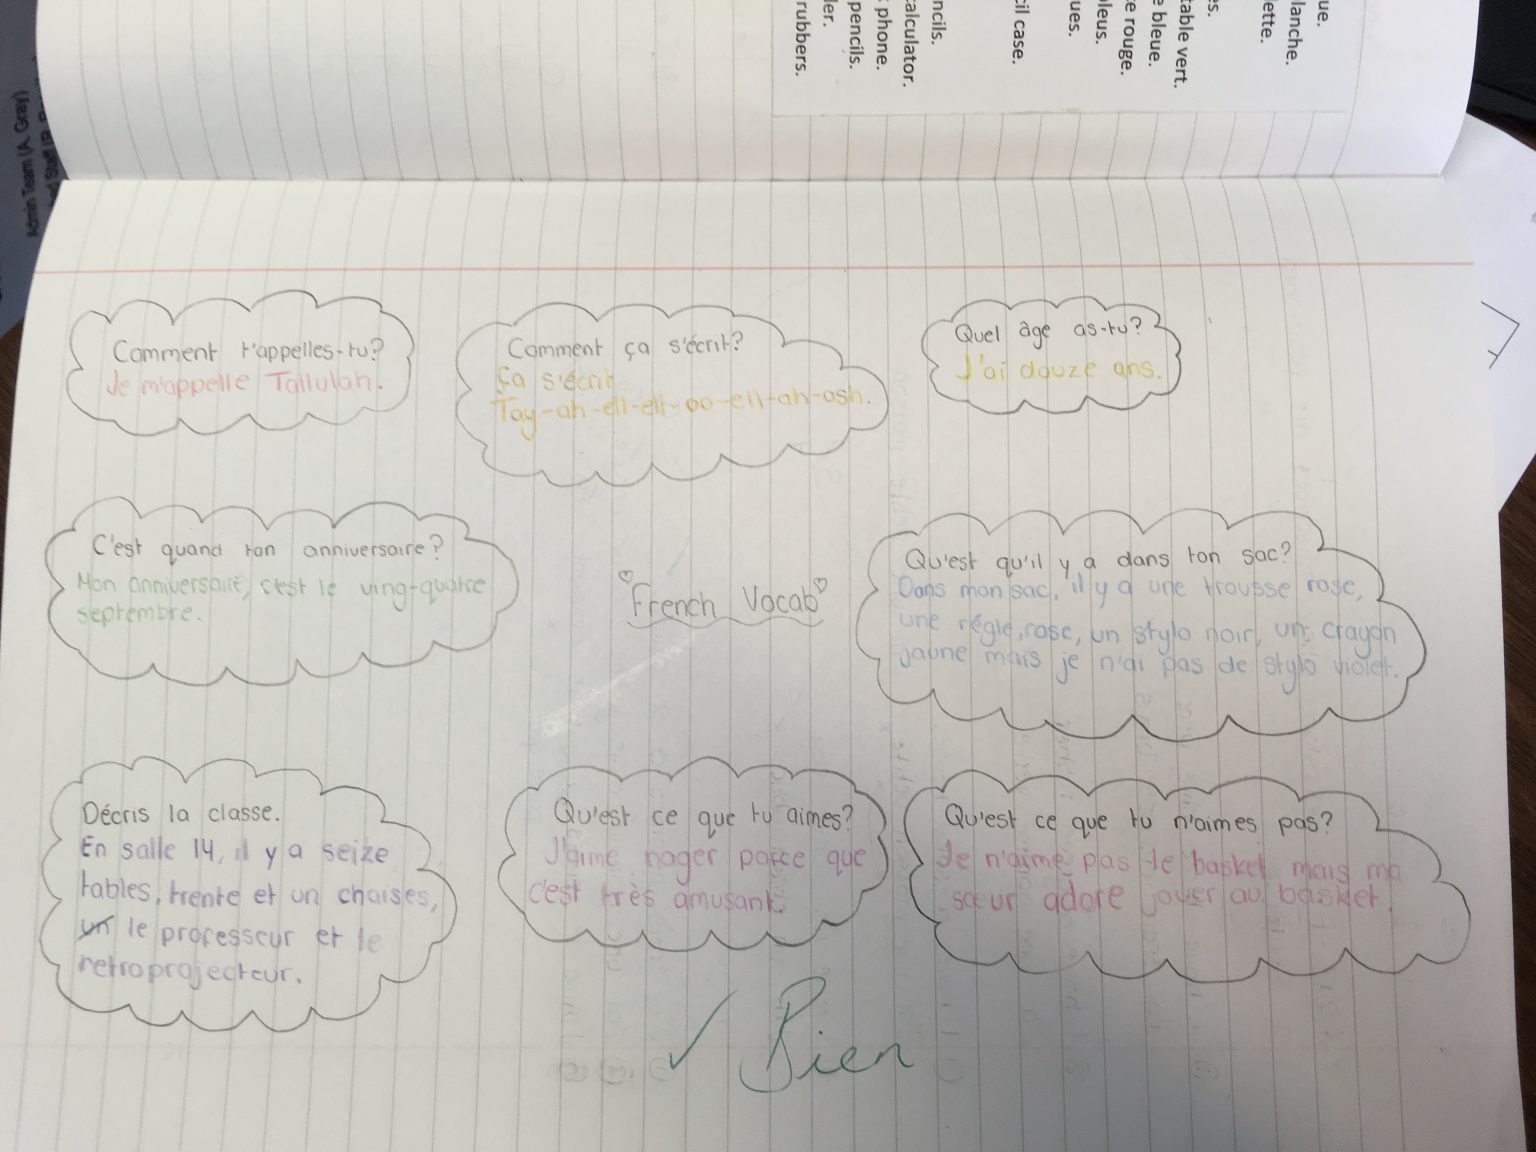 ue.
lanche.
lette.
es.
table vert.
e bleue.
te rouge.
bleus.
ues.
cil case.
ncils.
calculator.
phone.
pencils.
ler.
rubbers.
Comment t'appelles-tu?
Je m'appelle Tallulah.
Comment ça s'écrit?
Ça s'écrit
Tay-ah-ell-ell-oo-ell-ah-osh.
Quel âge as-tu?
J'ai douze ans.
C'est quand ton anniversaire?
Mon anniversaire, c'est le ving-quatre
septembre.
French Vocab
Qu'est qu'il y a dans ton sac?
Dans mon sac, il y a une trousse rose,
une régle, rose, un stylo noir, un crayon
jaune mais je n'ai pas de stylo violet.
Décris la classe.
En salle 14, il y a seize
tables, trente et un chaises,
un le professeur et le
retroprojecteur.
Qu'est ce que tu aimes?
J'aime nager parce que
c'est très amusant.
Qu'est ce que tu n'aimes pas?
Je n'aime pas le basket mais ma
sœur adore jouer au basket.
✓ Bien